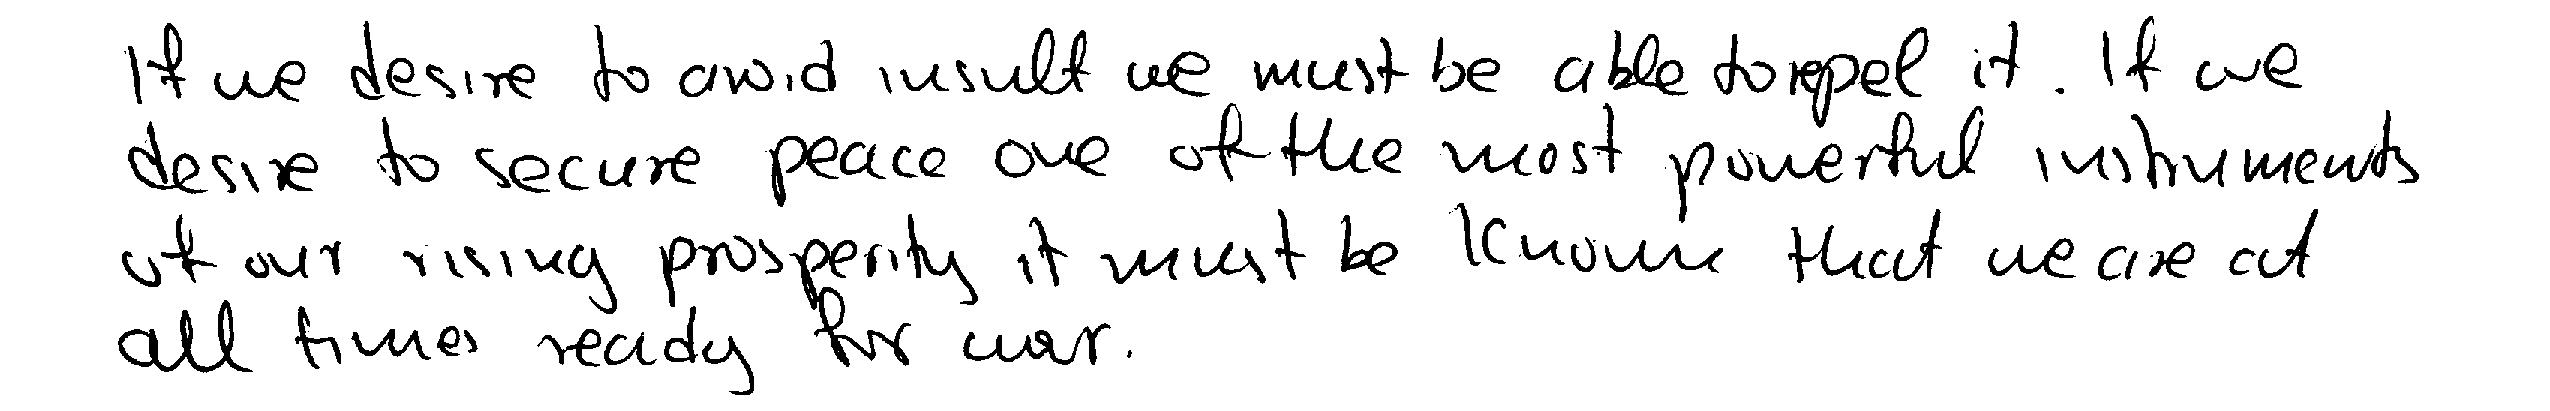 If we desire to avoid insult we must be able to repel it. If we
desire to secure peace one of the most powerful instruments
of our rising prosperity it must be known that we are at
all times ready for war.